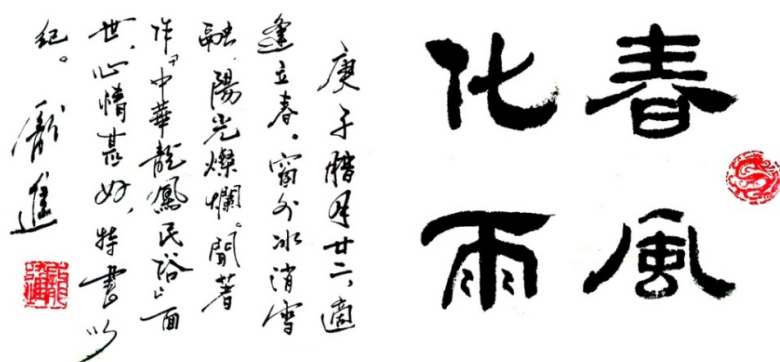 春風
化雨
庚子腊月廿二,適
逢立春。窗外冰消雪
融,陽光燦爛。聞著
作『中華龍鳳民俗』面
世,心情甚好,特書以
紀。龐進